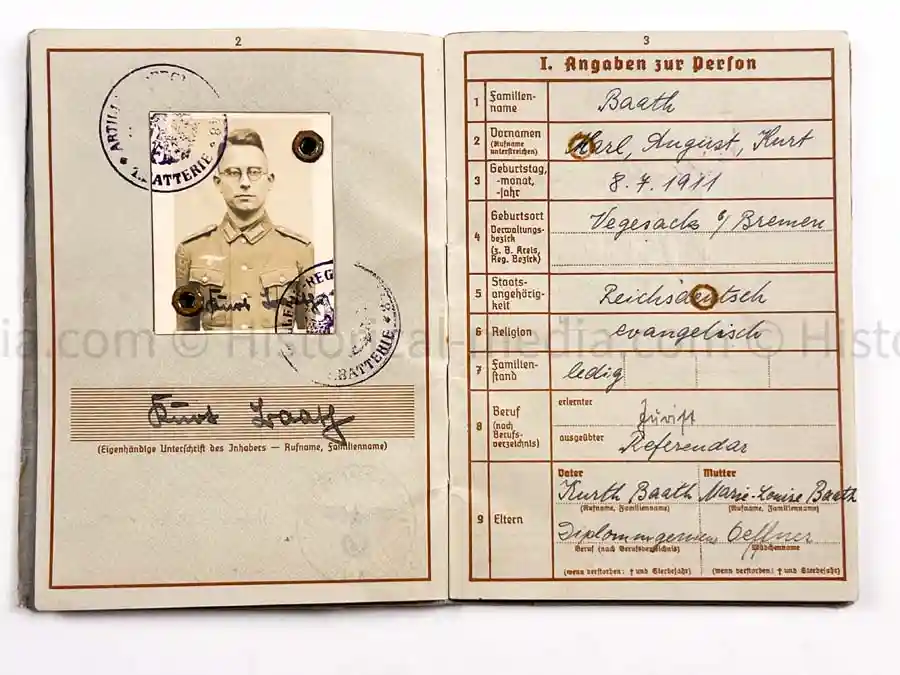 2
ARTILL
BATTERIE
REG
BATTERIE
Kurt Baath
(Eigenhändige Unterschrift des Inhabers — Rufname, Familienname)
3
I. Angaben zur Person
1 Familien-
name
Baath
2 Vornamen
(Rufname
unterstreichen)
Karl, August, Kurt
3 Geburtstag,
-monat,
-jahr
8.7.1911
4 Geburtsort
Verwaltungs-
bezirk
(z. B. Kreis,
Reg. Bezirk)
Vegesack b/Bremen
5 Staats-
angehörig-
keit
Reichsdeutsch
6 Religion
evangelisch
7 Familien-
stand
ledig
8 Beruf
(nach
Berufs-
verzeichnis)
erlernter
Jurist
ausgeübter
Referendar
9 Eltern
Vater
Kurth Baath
(Rufname, Familienname)
Diplomingenieur
Beruf (nach Berufsverzeichnis)
(wenn verstorben: † und Sterbejahr)
Mutter
Marie-Louise Baath
(Rufname, Familienname)
Oeffner
Mädchenname
(wenn verstorben: † und Sterbejahr)
ia.com © Historical-media.com © Histo